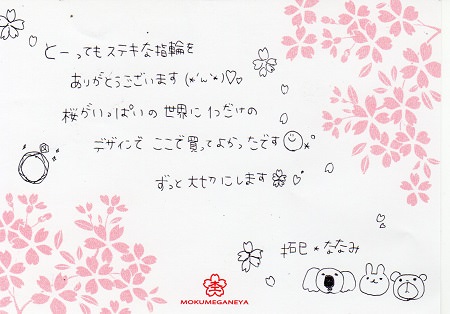 とーってもステキな指輪を
ありがとうございます(*'ω'*)♡♡
桜がいっぱいの世界に1つだけの
デザインで ここで買ってよかったです
ずっと大切にします
拓巳*ななみ
MOKUMEGANEYA